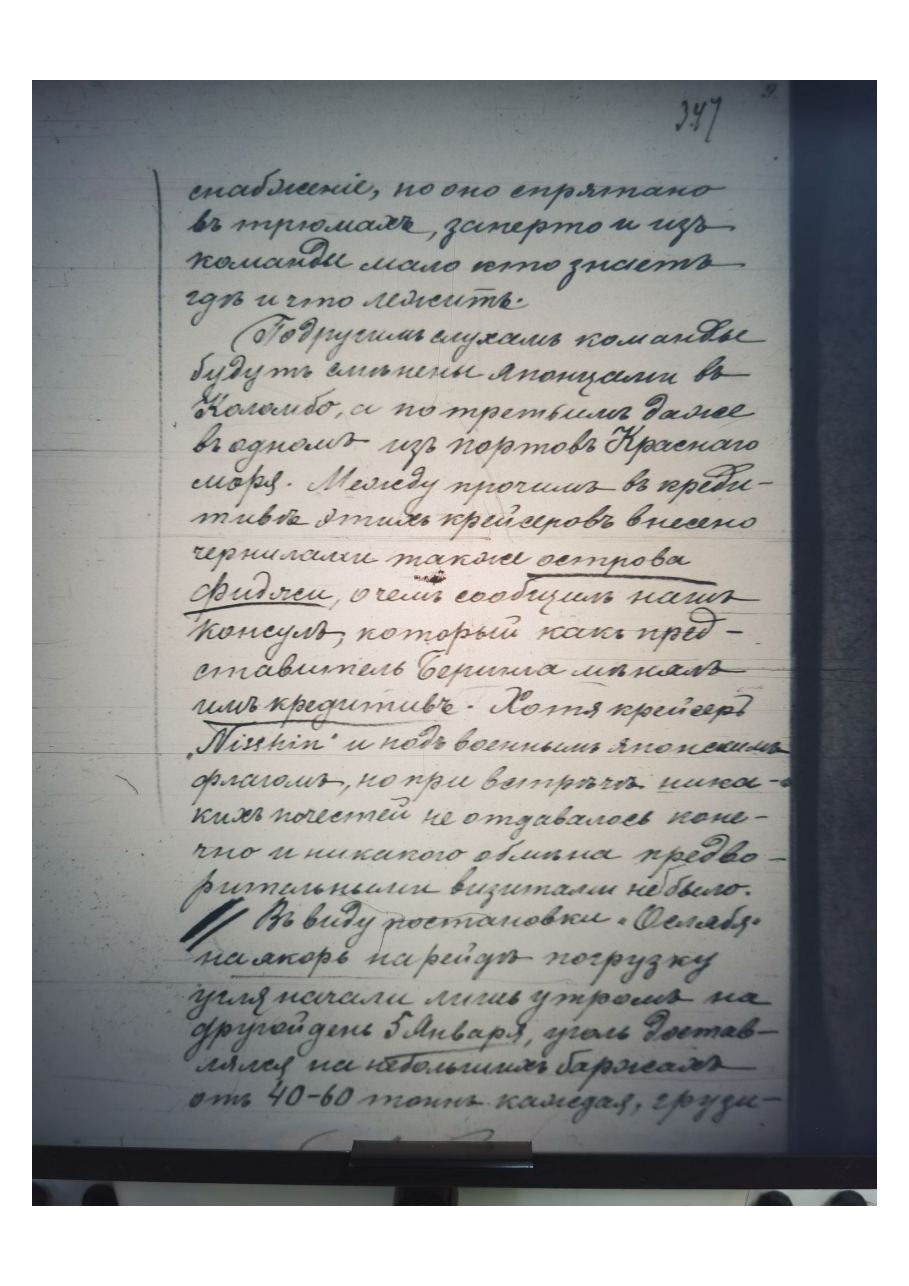 347
снабженіе, но оно спрятано
въ трюмахъ, заперто и изъ
команды мало кто знаетъ
гдѣ и что лежитъ.
По другимъ слухамъ команды
будутъ смѣнены японцами въ
Коломбо, а по третьимъ даже
въ одномъ изъ портовъ Краснаго
моря. Между прочимъ въ креди-
тивѣ этихъ крейсеровъ внесено
чернилами также острова
Фиджи, о чемъ сообщилъ нашъ
консулъ, который какъ пред-
ставитель Беринга мѣнялъ
имъ кредитивъ. Хотя крейсеръ
„Nisshin" и подъ военнымъ японскимъ
флагомъ, но при встрѣчѣ ника-
кихъ почестей не отдавалось коне-
чно и никакого обмѣна предво-
рительными визитами не было.
Въ виду постановки „Ослябя"
на якорь на рейдѣ погрузку
угля начали лишь утромъ на
другой день 5 Января, уголь достав-
лялся на небольшихъ баржахъ
отъ 40-60 тоннъ каждая, грузи-